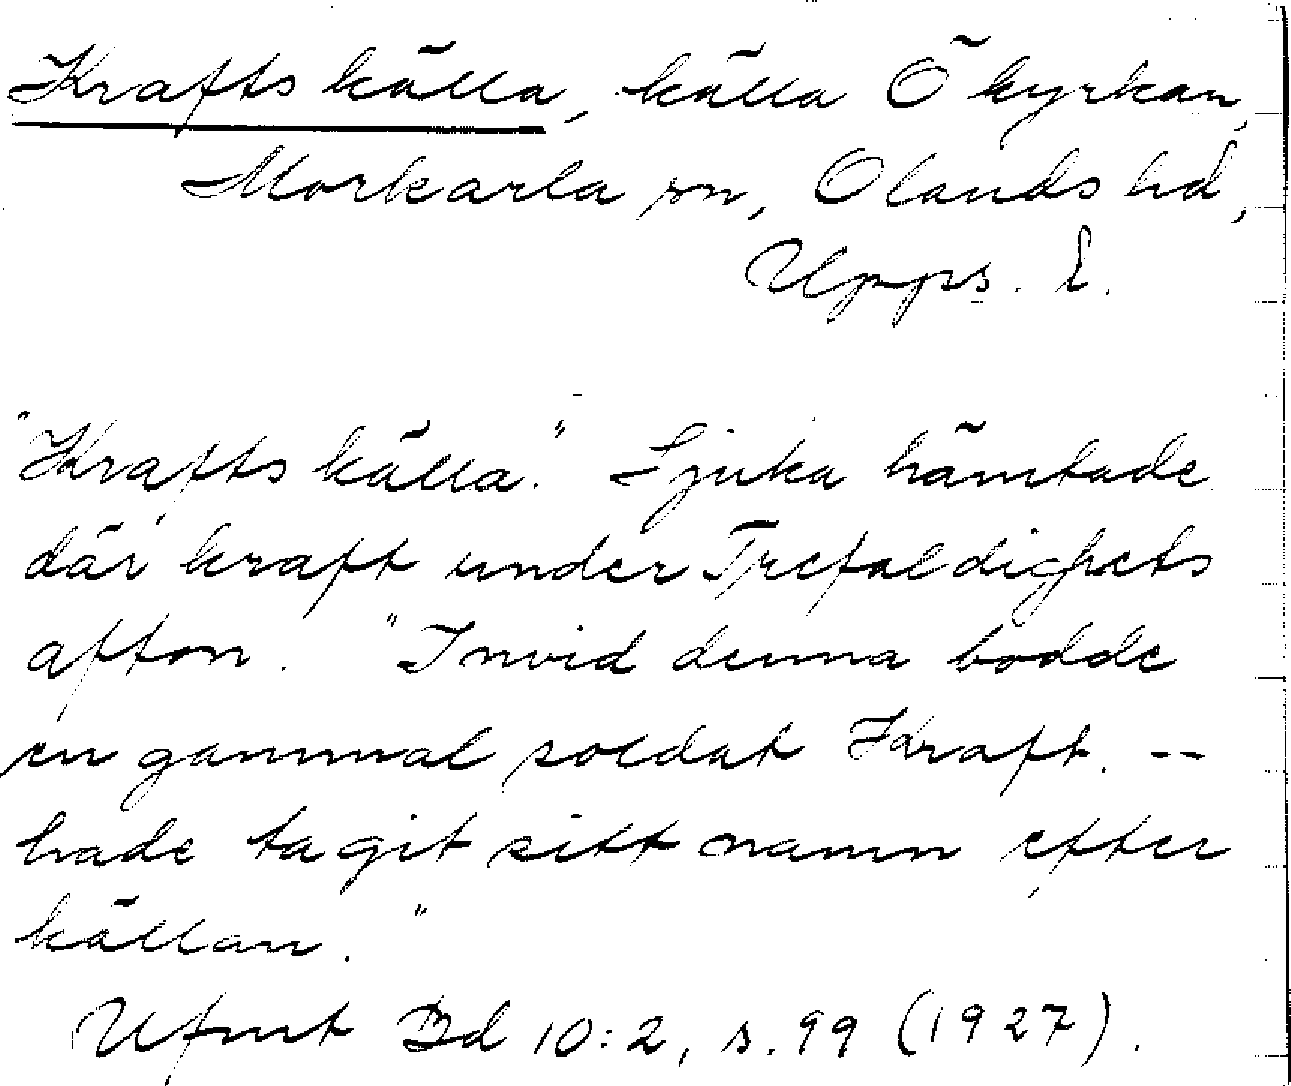 Krafts källa, källa Ö kyrkan,
Morkarla sn, Olands hd,
Upps. L.
"Krafts källa." Sjuka hämtade
där kraft under Trefaldighets
afton. "Invid denna bodde
en gammal soldat Kraft. --
hade tagit sitt namn efter
källan."
Ufmt Bd 10:2, s. 99 (1927).